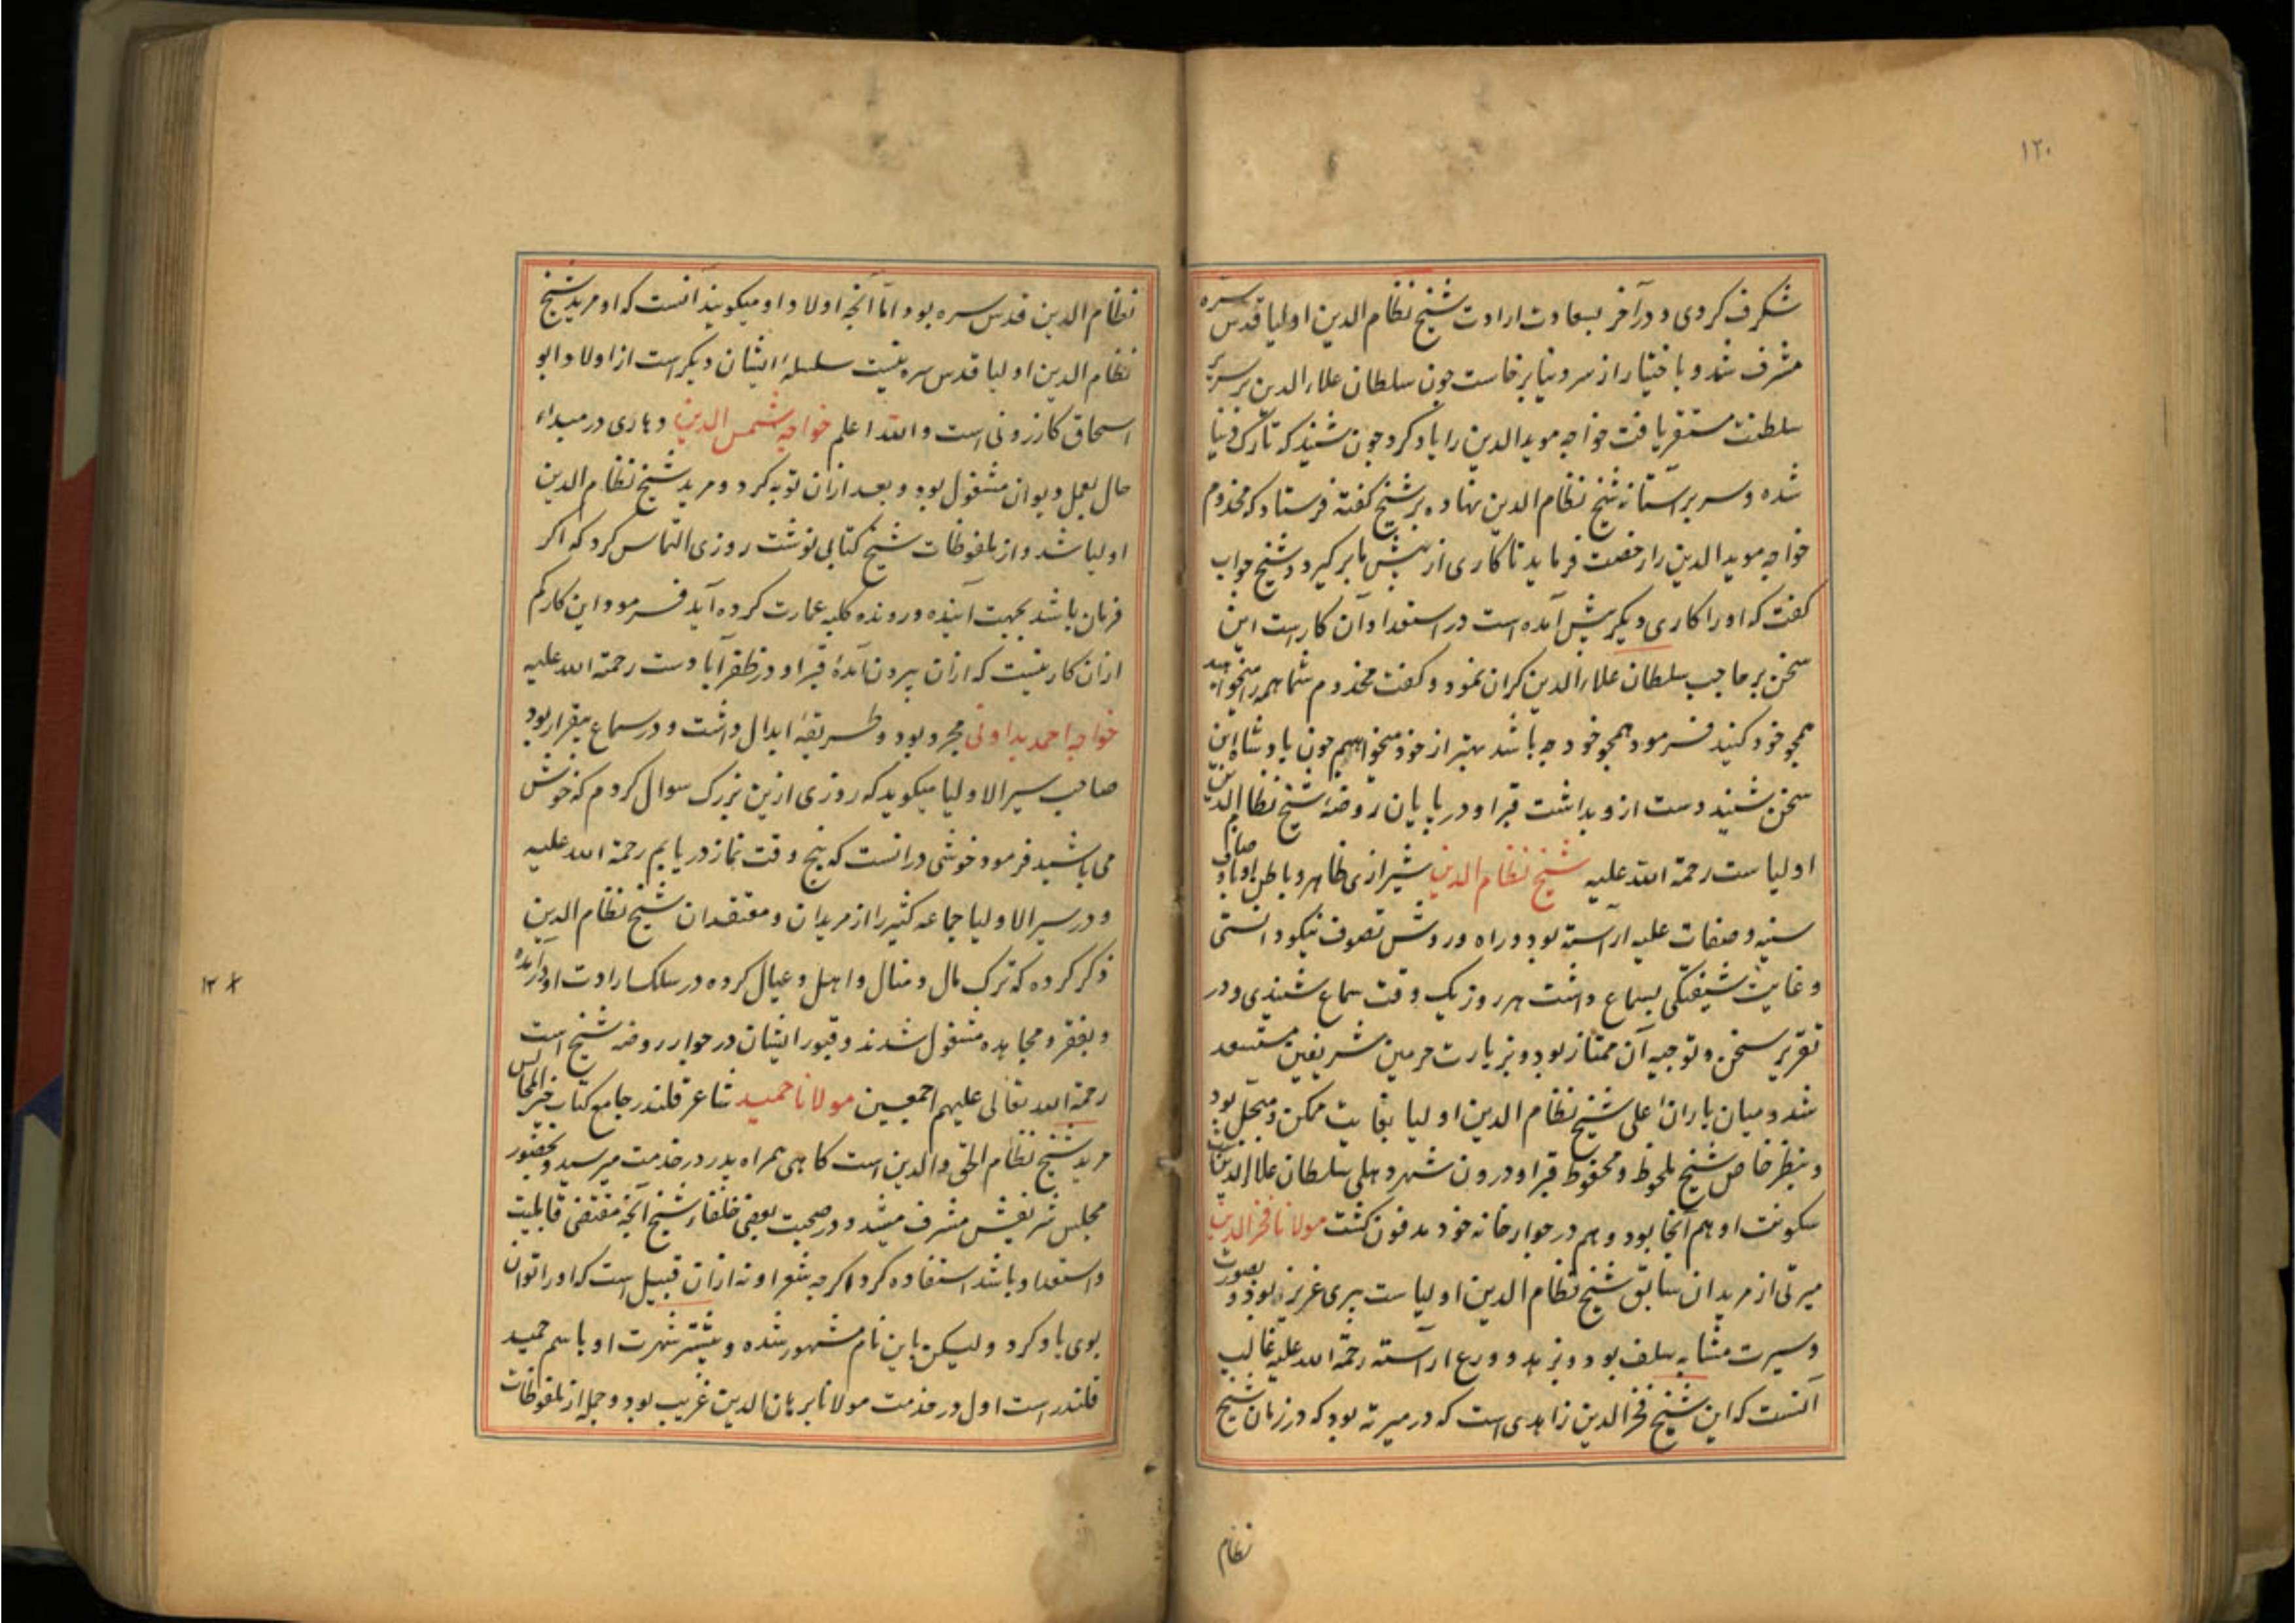 ۱۲۰
شکرف کردی و در آخر بسعادت ارادت شیخ نظام الدین اولیا قدس سره
مشرف شد و باختیار از سر دنیا برخاست جون سلطان علاء الدین بر سریر
سلطنت مستقر یافت خواجه موید الدین را یاد کرد جون شنید که تارک دنیا
شده و سر بر آستانه شیخ نظام الدین نهاده بر شیخ کفته فرستاد که مخدوم
خواجه موید الدین را رخصت فرماید تا کاری از پیش ما بر کیرد و شیخ جواب
کفت که او را کاری دیکر پیش آمده است در استعداد آن کار است این
سخن بر حاجب سلطان علاء الدین کران نمود و کفت مخدوم شما همه را میخواهید
همجو خود کنید فرمود همجو خود جه باشد بهتر از خود میخواهیم جون بادشاه این
سخن شنید دست از و بداشت قبر او در پایان روضه شیخ نظام الدین
اولیا ست رحمة الله علیه شیخ نظام الدین شیرازی ظاهر و باطن او باوصاف
سنیه و صفات علیه آراسته بود و راه و روش تصوف نیکو دانستی
و غایت شیفتکی بسماع داشت هر روز یک وقت سماع شنیدی و در
تقریر سخن و توجیه آن ممتاز بود و بزیارت حرمین شریفین مستسعد
شد و میان یاران اعلی شیخ نظام الدین اولیا بغایت ممکن و مبجل بود
و بنظر خاص شیخ ملحوظ و محفوظ قبر او درون شهر دهلی سلطان علاء الدین ست
سکونت او هم آنجا بود و هم در جوار خانه خود مدفون کشت مولانا فخر الدین
میرتی از مریدان سابق شیخ نظام الدین اولیا ست پیری عزیز بود و بصورت
و سیرت مشابه سلف بود و بزهد و ورع آراسته رحمة الله علیه غالب
آنست که این شیخ فخر الدین زاهدی است که در میرته بود که در زمان شیخ
نظام
نظام الدین قدس سره بود اما آنجه اولاد او میکویند آنست که او مرید شیخ
نظام الدین اولیا قدس سره نیست سلسله ایشان دیکر است از اولاد ابو
اسحاق کازرونی است والله اعلم خواجه شمس الدین دهاری در مبداء
حال بعمل دیوان مشغول بود و بعد ازان توبه کرد و مرید شیخ نظام الدین
اولیا شد و از ملفوظات شیخ کتابی نوشت روزی التماس کرد که اکر
فرمان باشد بجهت آینده و رونده کلبه عمارت کرده آید فرمود این کار کم
ازان کار نیست که ازان بیرون آمدۀ قبر او در ظفرآبادست رحمة الله علیه
خواجه احمد بداونی مجرد بود و طریقه ابدال داشت و در سماع بیقرار بود
صاحب سیر الاولیا میکوید که روزی ازین بزرک سوال کردم که خوش
می باشید فرمود خوشی در انست که پنج وقت نماز در یابم رحمة الله علیه
و در سیر الاولیا جماعه کثیر را از مریدان و معتقدان شیخ نظام الدین
ذکر کرده که ترک مال و منال و اهل و عیال کرده در سلک ارادت او درآمده
و بفقر و مجاهده مشغول شدند و قبور ایشان در جوار روضه شیخ است
رحمة الله تعالی علیهم اجمعین مولانا حمید شاعر قلندر جامع کتاب خیر المجالس
مرید شیخ نظام الحق والدین است کاهی همراه پدر در خدمت میرسید و بحضور
مجلس شریفش مشرف میشد و در صحبت بعضی خلفاء شیخ آنجه مقتضی قابلیت
و استعداد باشد استفاده کرد اکرجه شعر او نه ازان قبیل است که او را توان
بوی یاد کرد ولیکن باین نام مشهور شده و بیشتر شهرت او باسم حمید
قلندر است اول در خدمت مولانا برهان الدین غریب بود و جمله از ملفوظات